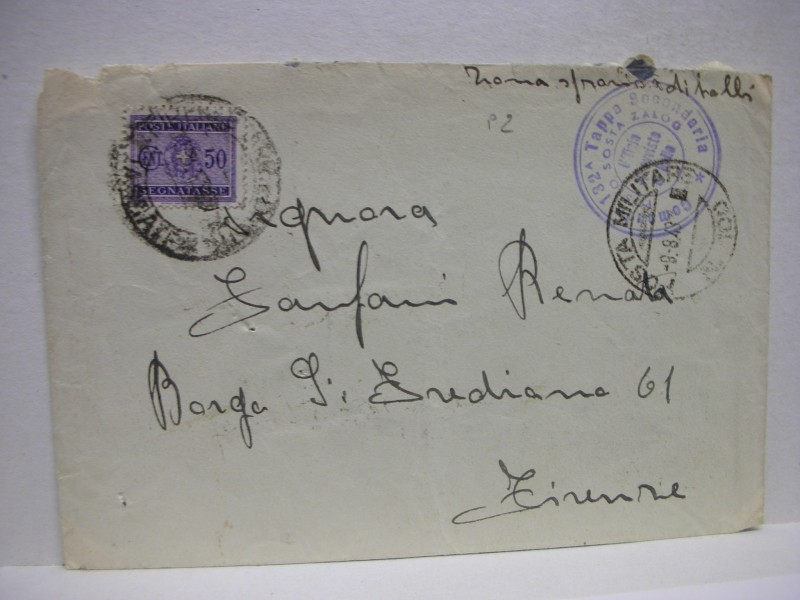 Zona sprovvista di bolli
P2
POSTE ITALIANE
CENT. 50
SEGNATASSE
132ª Tappa Secondaria
SOSTA ZALOG
POSTA MILITARE
Signora
Zanfani Renata
Borgo S. Frediano 61
Firenze